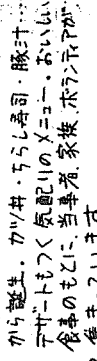 から誕生。カツ丼・ちらし寿司・豚汁…
デザートもつく気配りのメニュー。おいしい
食事のもとに、当事者、家族、ボランティアが
集まっています